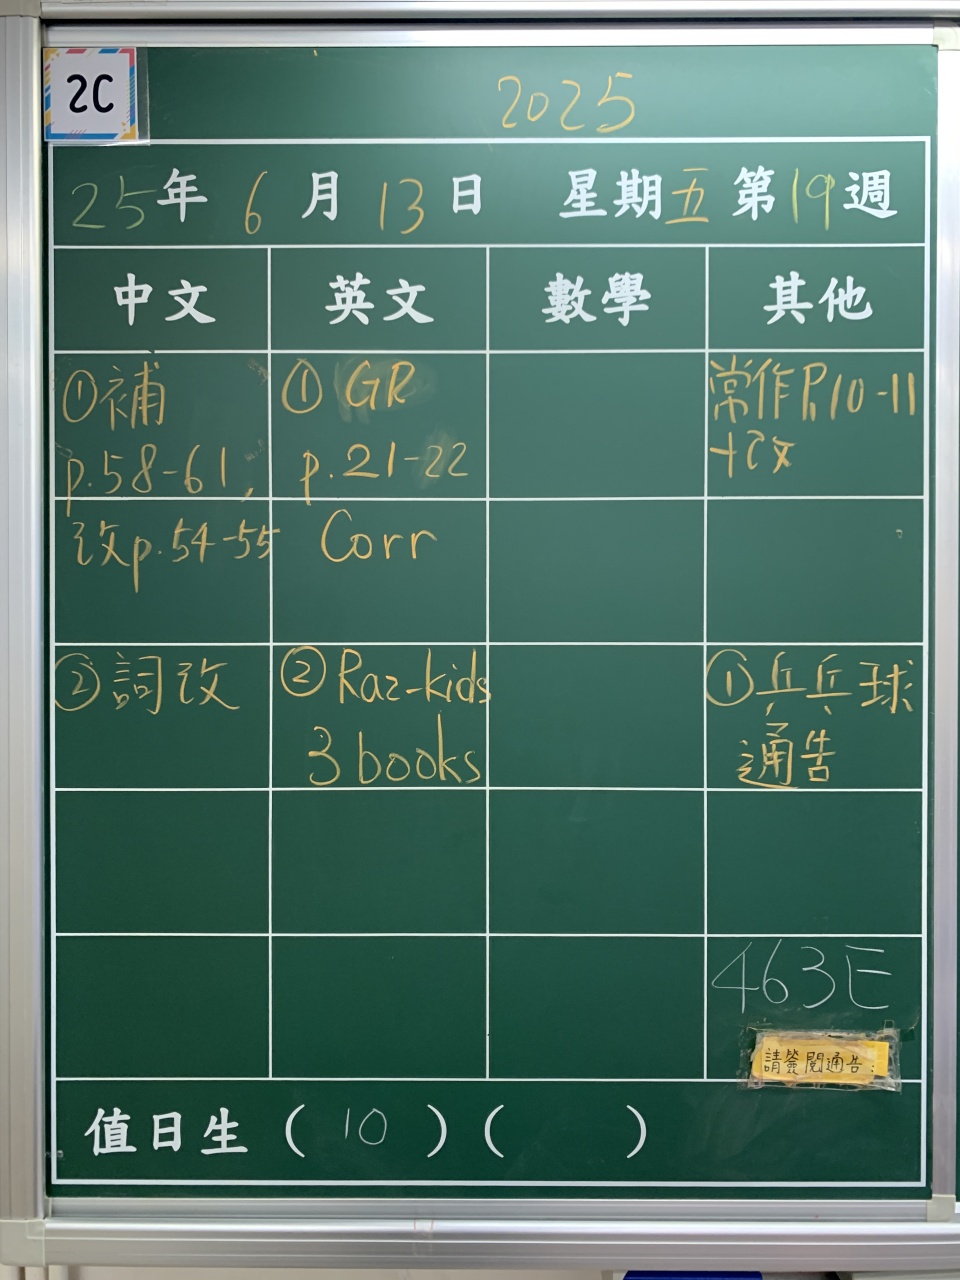 2C
2025
25年 6月 13日 星期五 第19週
中文 英文 數學 其他
①補
p.58-61,
改p.54-55
②詞改
① GR
p.21-22
Corr
② Raz-kids
3 books
常作P.10-11
+改
①乒乓球
通告
463E
請簽閱通告:
值日生 ( 10 ) ( )